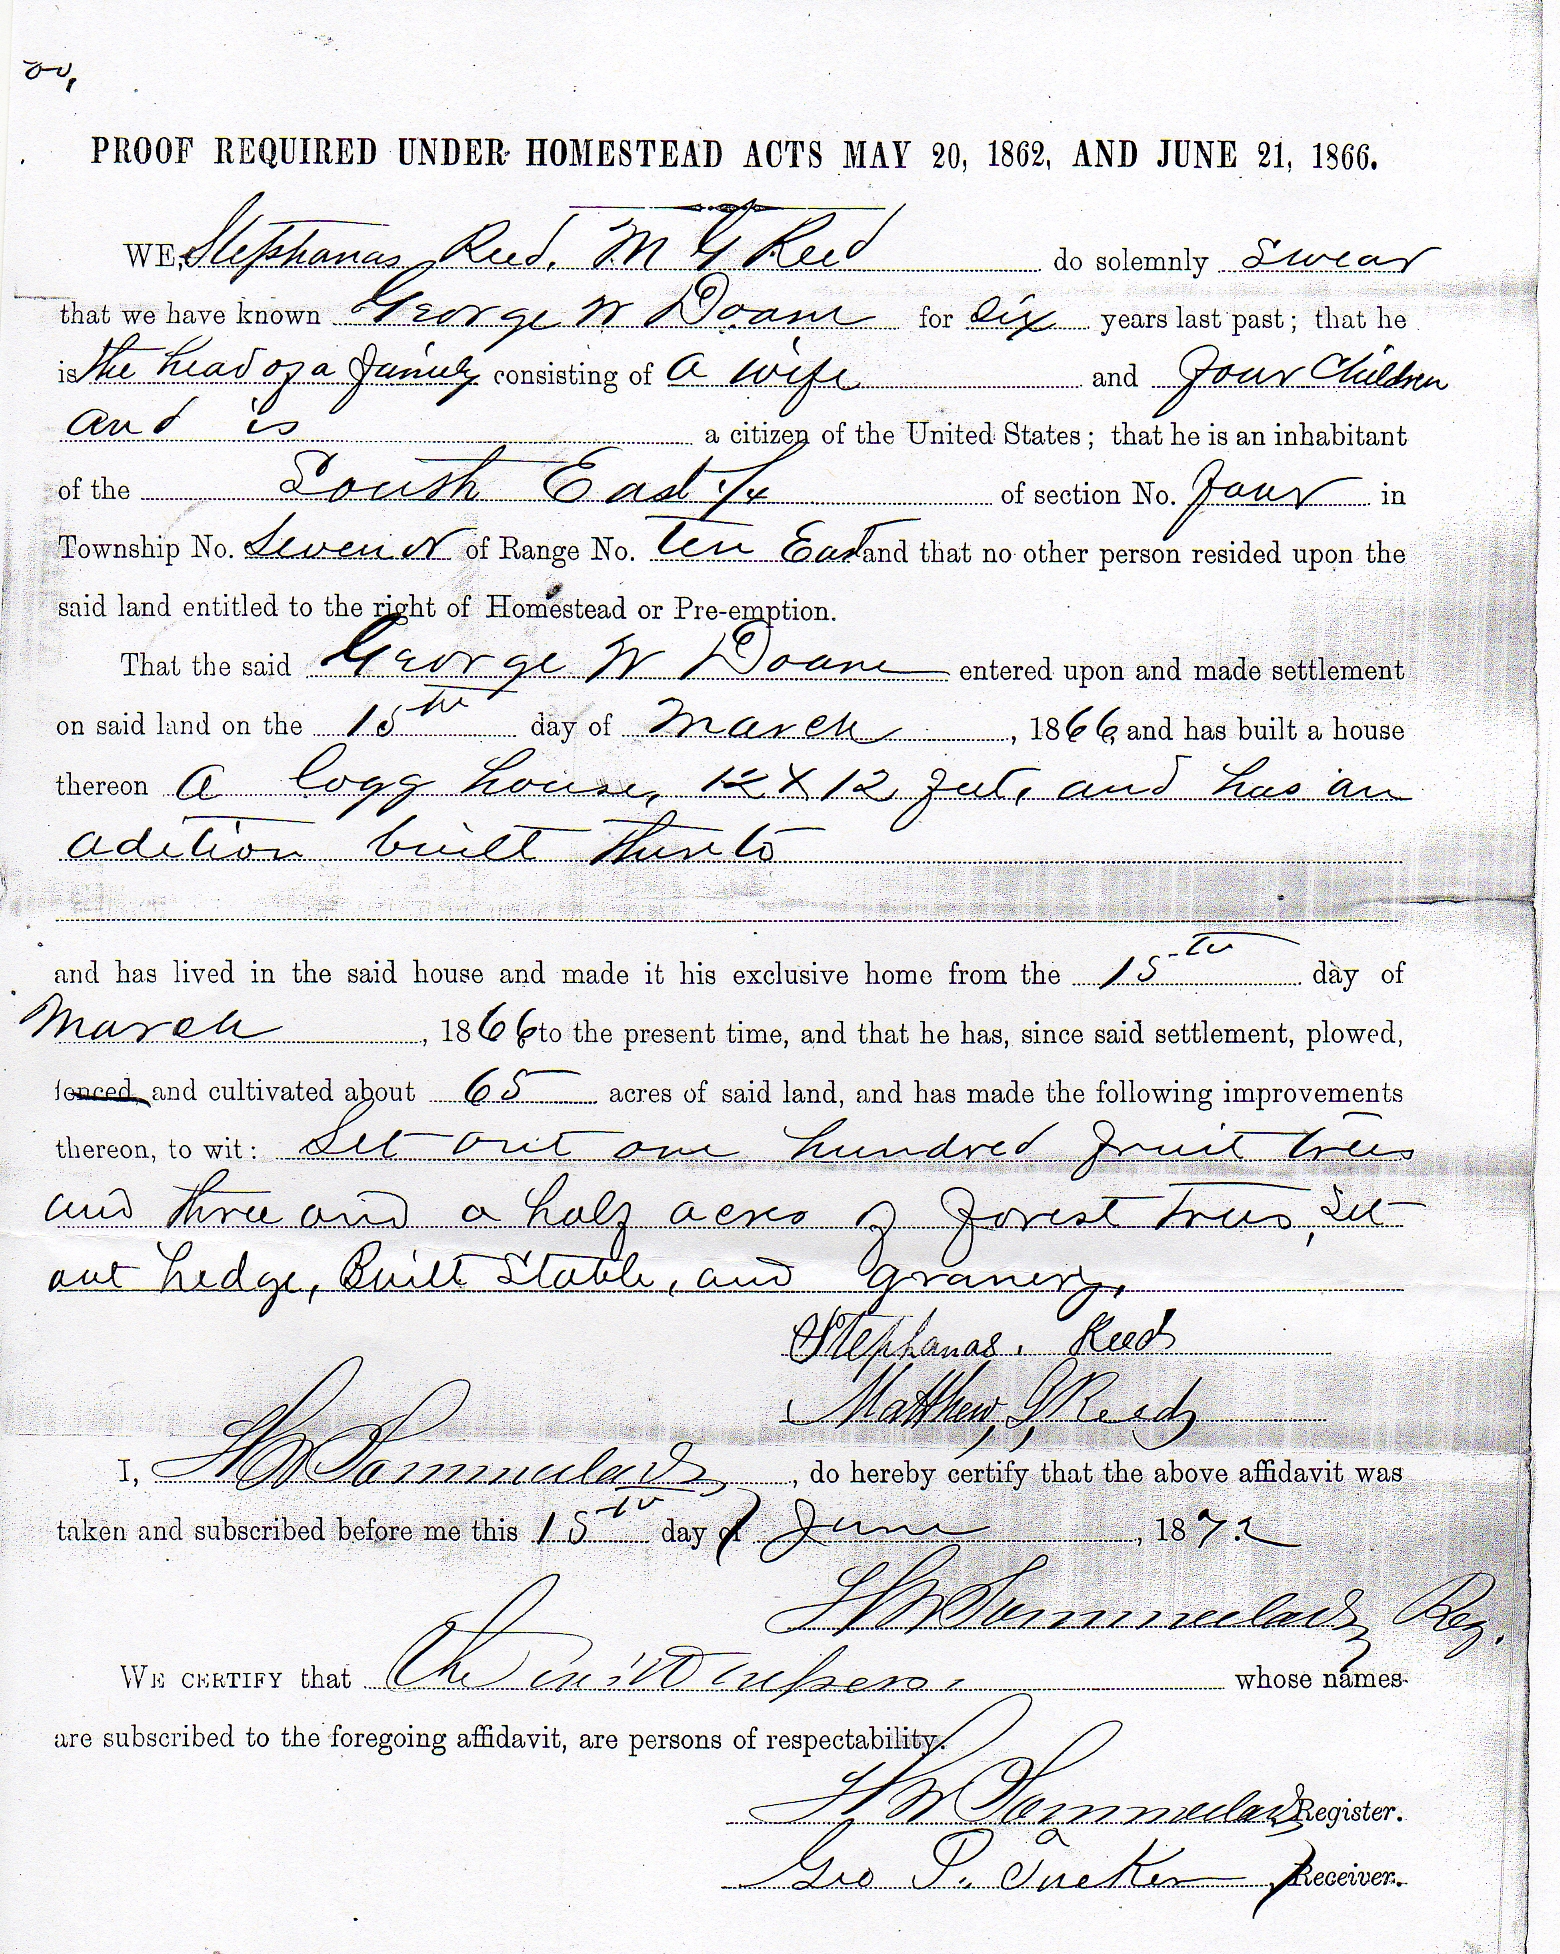 PROOF REQUIRED UNDER HOMESTEAD ACTS MAY 20, 1862, AND JUNE 21, 1866.
WE, Stephanas Reed, M G Reed do solemnly Swear
that we have known George W Doane for Six years last past; that he
is the head of a family consisting of a wife and four Children
and is a citizen of the United States; that he is an inhabitant
of the South East 1/4 of section No. four in
Township No. Seven N of Range No. ten East and that no other person resided upon the
said land entitled to the right of Homestead or Pre-emption.
That the said George W Doane entered upon and made settlement
on said land on the 15th day of March, 1866, and has built a house
thereon a logg house, 12 X 12 feet, and has an
adition built thereto
and has lived in the said house and made it his exclusive home from the 15th day of
March, 1866 to the present time, and that he has, since said settlement, plowed,
fenced, and cultivated about 65 acres of said land, and has made the following improvements
thereon, to wit: Set out one hundred fruit trees
and three and a half acres of forest trees, Set
out hedge, Built Stable, and granery.
Stephanas. Reed
Matthew, G, Reed
I, do hereby certify that the above affidavit was
taken and subscribed before me this 15th day of June, 1872
Reg.
WE CERTIFY that whose names
are subscribed to the foregoing affidavit, are persons of respectability.
Register.
Geo P. Tucker Receiver.